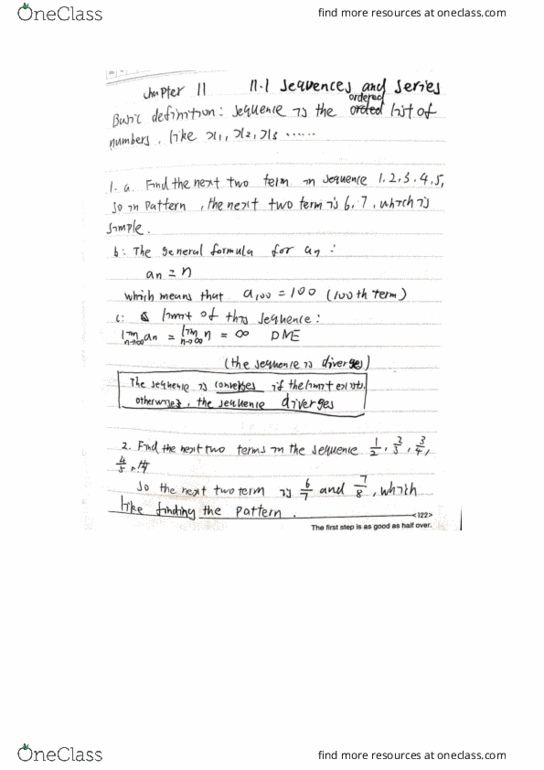 OneClass
find more resources at oneclass.com
chapter 11 11.1 Sequences and Series
ordered
Basic definition: sequence is the list of
numbers, like x1, x2, x3 ......
1. a. Find the next two term in sequence 1.2.3.4.5,
so in pattern, the next two term is 6.7. which is
simple.
b: The general formula for an:
an = n
which means that a100 = 100 (100th term)
c: limit of this sequence:
lim n→∞ an = lim n→∞ n = ∞ DNE
(the sequence is diverges)
The sequence is converges if the limit exists,
otherwise, the sequence diverges
2. Find the next two terms in the sequence 1/2, 3/4,
4/5
So the next two term is 6/7 and 7/8, which
like finding the pattern.
<122>
The first step is as good as half over.
OneClass
find more resources at oneclass.com